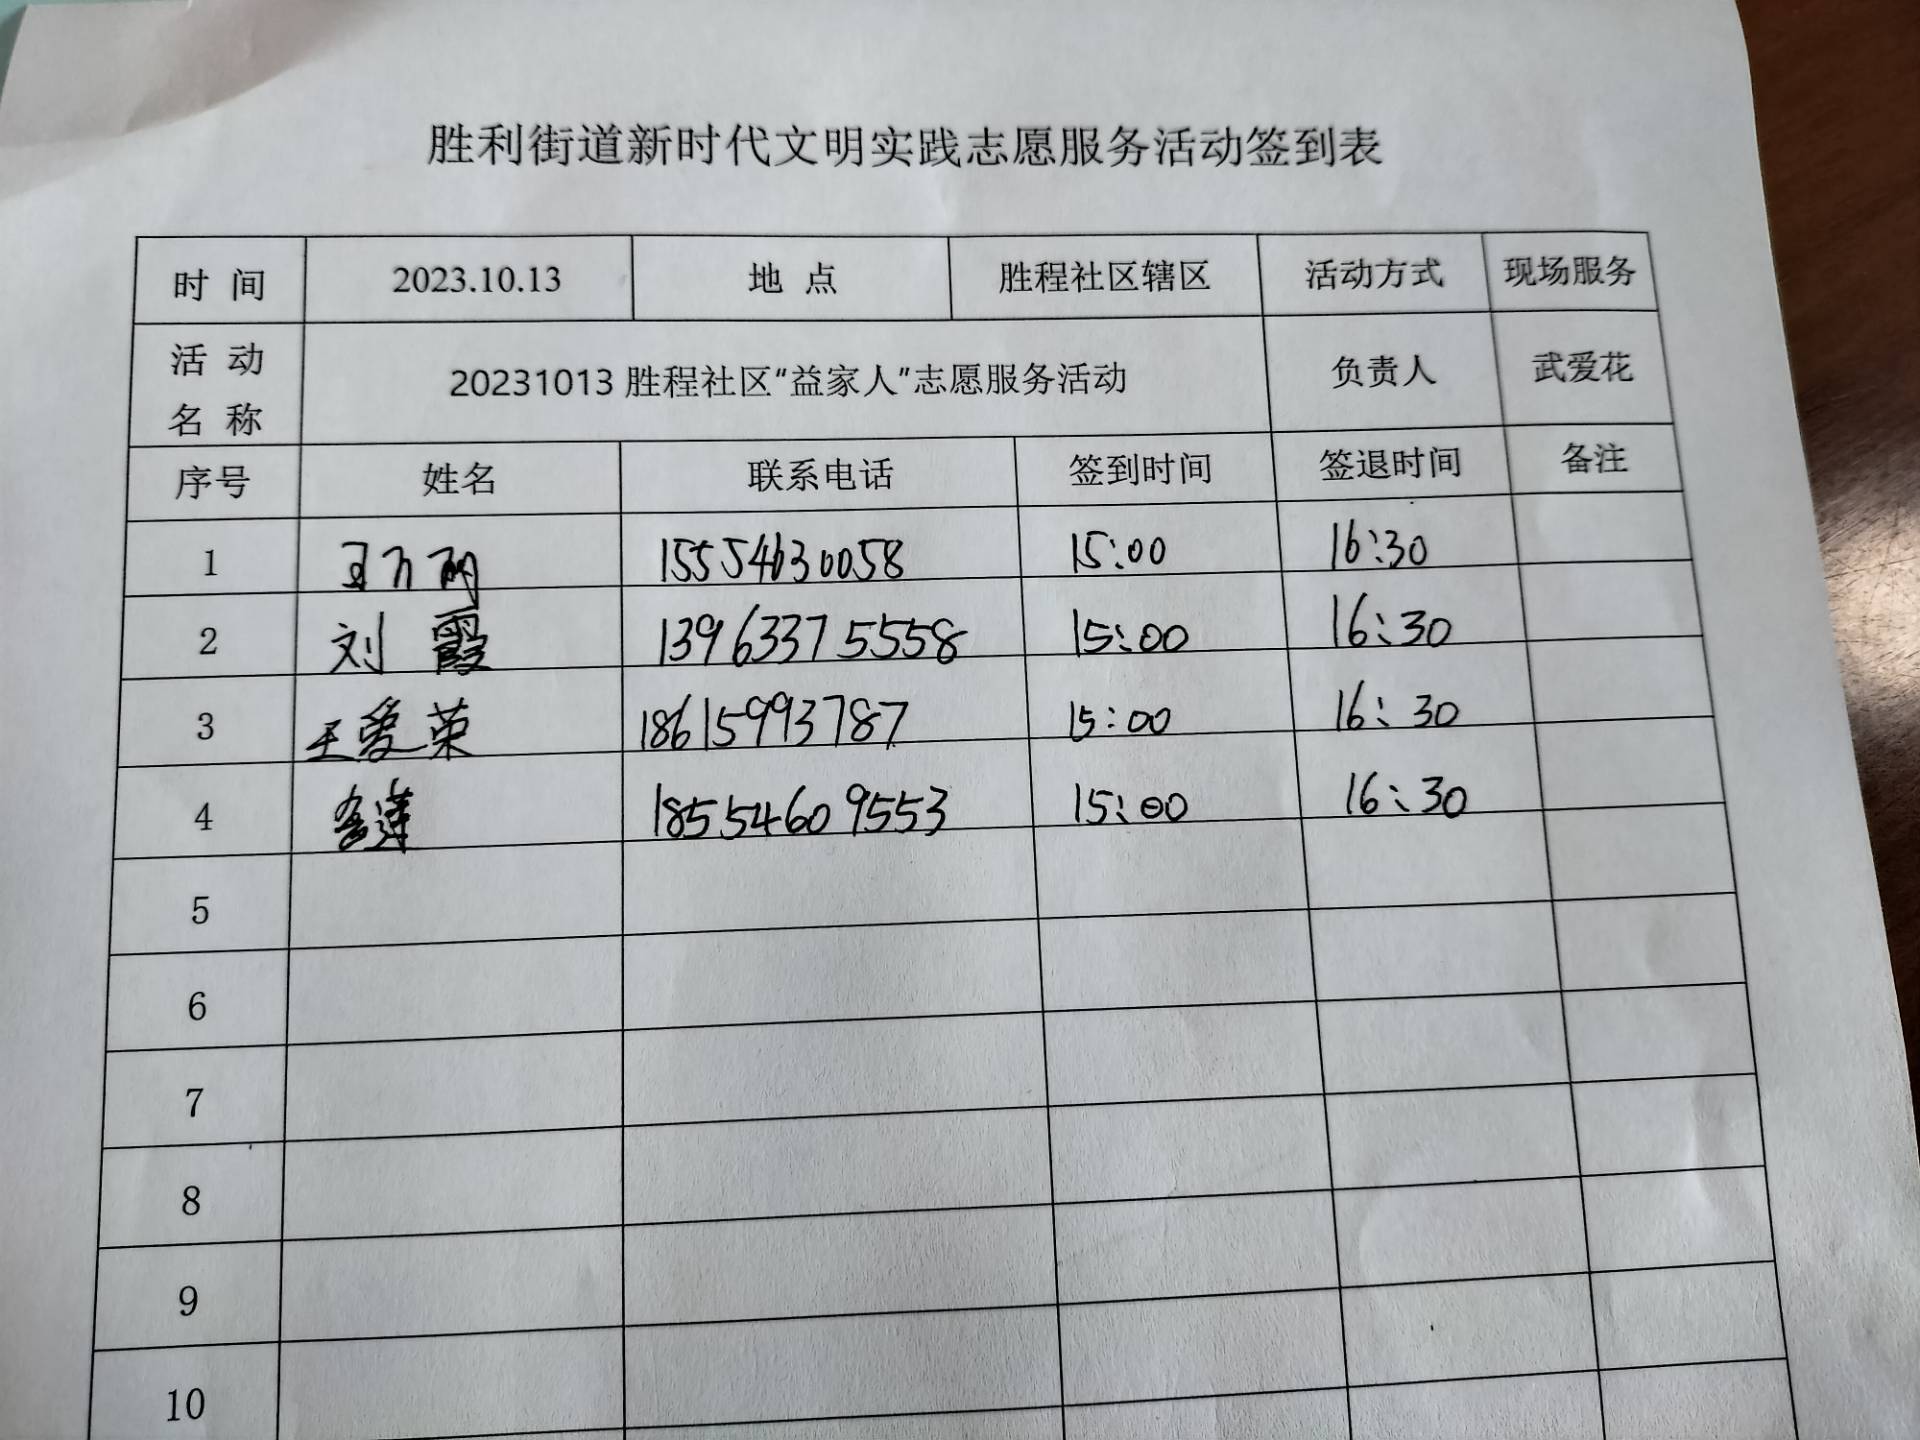 胜利街道新时代文明实践志愿服务活动签到表
时 间 2023.10.13 地 点 胜程社区辖区 活动方式 现场服务
活 动 名 称 20231013 胜程社区“益家人”志愿服务活动 负责人 武爱花
序号 姓名 联系电话 签到时间 签退时间 备注
1 15554630058 15:00 16:30
2 刘霞 13963375558 15:00 16:30
3 王爱荣 18615993787 15:00 16:30
4 18554609553 15:00 16:30
5
6
7
8
9
10